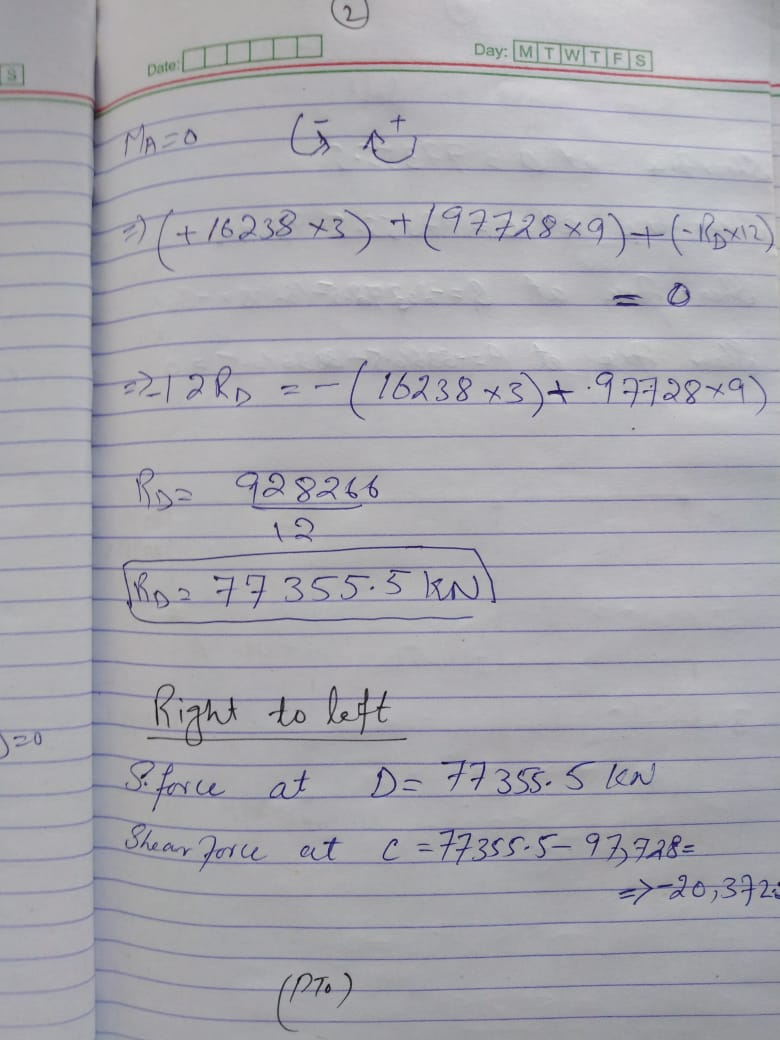 2
Date:
Day: M T W T F S
S
MA=0 - +
⇒ (+16238×3) + (97728×9) + (-RD×12)
= 0
⇒ -12RD = -(16238×3) + 97728×9)
RD= 928266
12
RD= 77355.5 KN
Right to left
)=0
S.force at D= 77355.5 KN
Shear force at C =77355.5- 97,728=
⇒ -20,372.
(PTo)